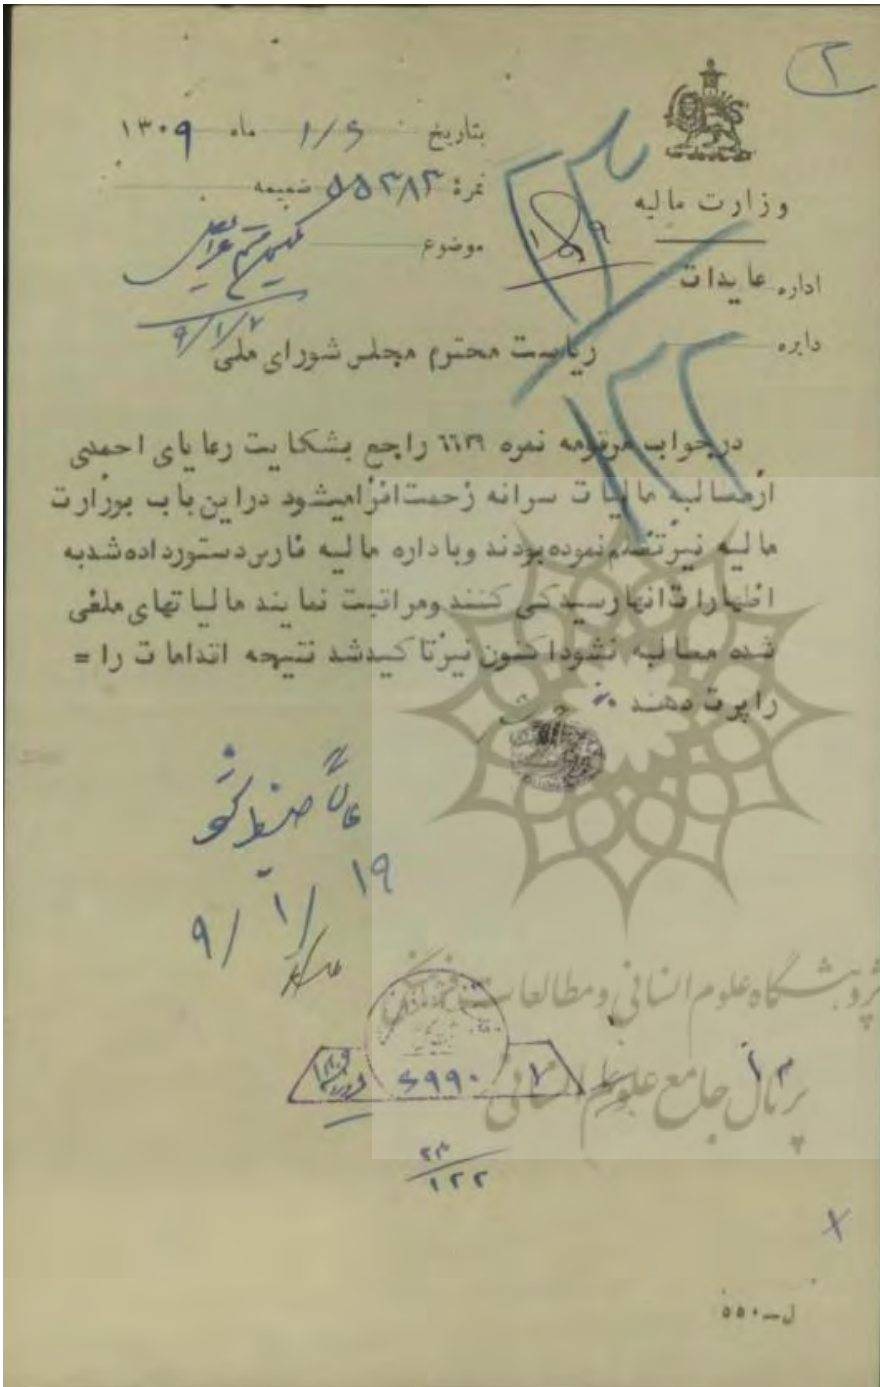 ۲
وزارت مالیه
اداره عایدات
دایره
بتاریخ ۱/۶ ماه ۱۳۰۹
نمرهٔ ۵۵۳۸۳ ضمیمه
موضوع
۹/۱/۷
۲۳/۱۲۲
ریاست محترم مجلس شورای ملی
درجواب مرقومه نمره ٦٦٣٩ راجع بشکایت رعایای احمدی
ازمطالبه مالیات سرانه زحمت افزامیشود دراین باب بوزارت
مالیه نیزتظلم نموده بودند وباداره مالیه فارس دستورداده شدبه
اظهارات انهارسیدگی کنند ومراقبت نمایند مالیاتهای ملغی
شده مطالبه نشوداکنون نیزتاکیدشد نتیجه اقدامات را =
راپرت دهند
ضبط شود
۹/۱/۱۹
۶۹۹۰
۷
۲۳/۱۲۲
پژوهشگاه علوم انسانی و مطالعات فرهنگی
پرتال جامع علوم انسانی
ل-۵۵۰